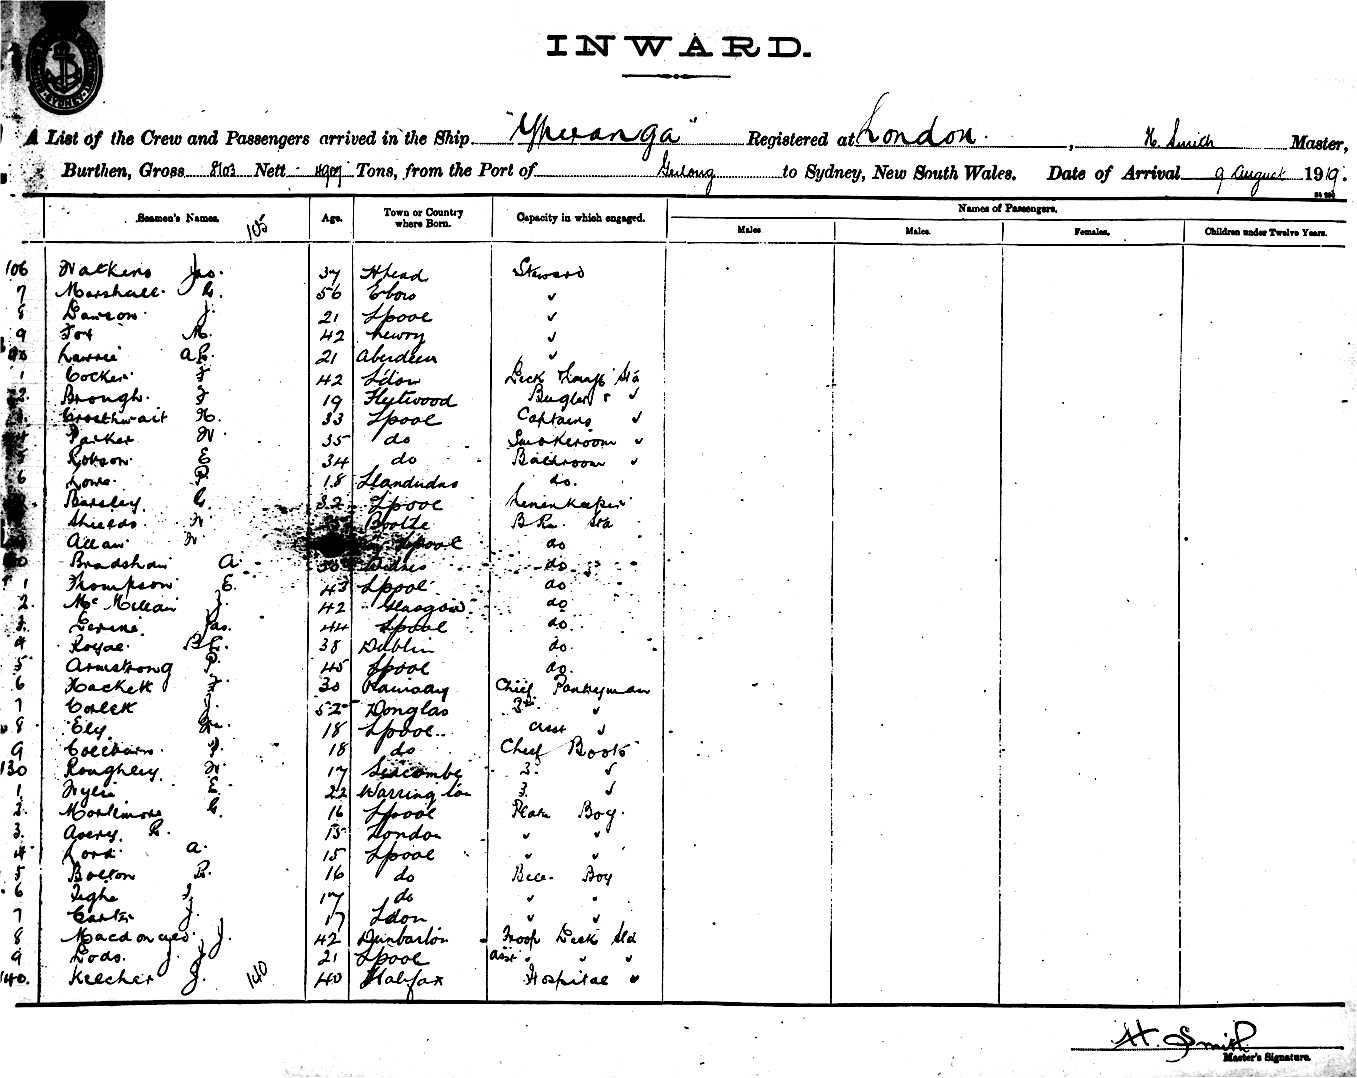 INWARD.
A List of the Crew and Passengers arrived in the Ship "Ypiranga" Registered at London. , H. Smith Master,
Burthen, Gross 8103 Nett 4909 Tons, from the Port of Geelong to Sydney, New South Wales. Date of Arrival 9 August 1919.
Seamen's Names. 105 Age. Town or Country where Born. Capacity in which engaged. Names of Passengers.
Males Males. Females. Children under Twelve Years.
106 Watkins Jas. 37 Steward
7 Marshall. G. 56 "
8 Dawson. J. 21 Lpool "
9 Fox M. 42 Newry "
Lawrie A. 21 Aberdeen "
1 Cocker F 42 L'don Deck
2. Brough. J 19 Fleetwood Bugler "
Crosthwait H. 33 Lpool Captains "
Parker W. 35 do Smokeroom "
Robson E 34 do Bathroom "
6 Lowe. P. 18 Llandudno do.
Barsley G. 32 Lpool Linenkeeper
Shields. W. Bootle B.R. Std
Allan W. Lpool do
Bradshaw A. Widnes do
1 Thompson E. 43 Lpool do
2. McMillan J. 42 Glasgow do
3. Jas. 44 Lpool do.
4 Royal. 38 Dublin do.
5 Armstrong P. 45 Lpool do.
6 Hackett J. 30 Ramsay Chief Pantryman
7 Corlett J. 52 Douglas 3rd "
8 Ely. Wm. 18 Lpool. asst "
9 Colebourn. 18 do Chief Boots
130 Roughley W. 17 Seacombe 3. "
1 Wylie E. 22 Warrington 3. "
2. Mortimore G. 16 Lpool Plate Boy.
3. Avery. R. 15 London " "
4 Lord. A. 15 Lpool " "
5 Bolton R. 16 do Bell Boy
6 Tighe J. 17 do " "
7 Carter J. 17 L'don " "
8 Macdonald. J. 42 Dunbarton Troop Deck Std
9 Dods. J. J. 21 Lpool asst " " "
140. Kelcher J. 140 40 Halifax Hospital "
H. Smith
Master's Signature.